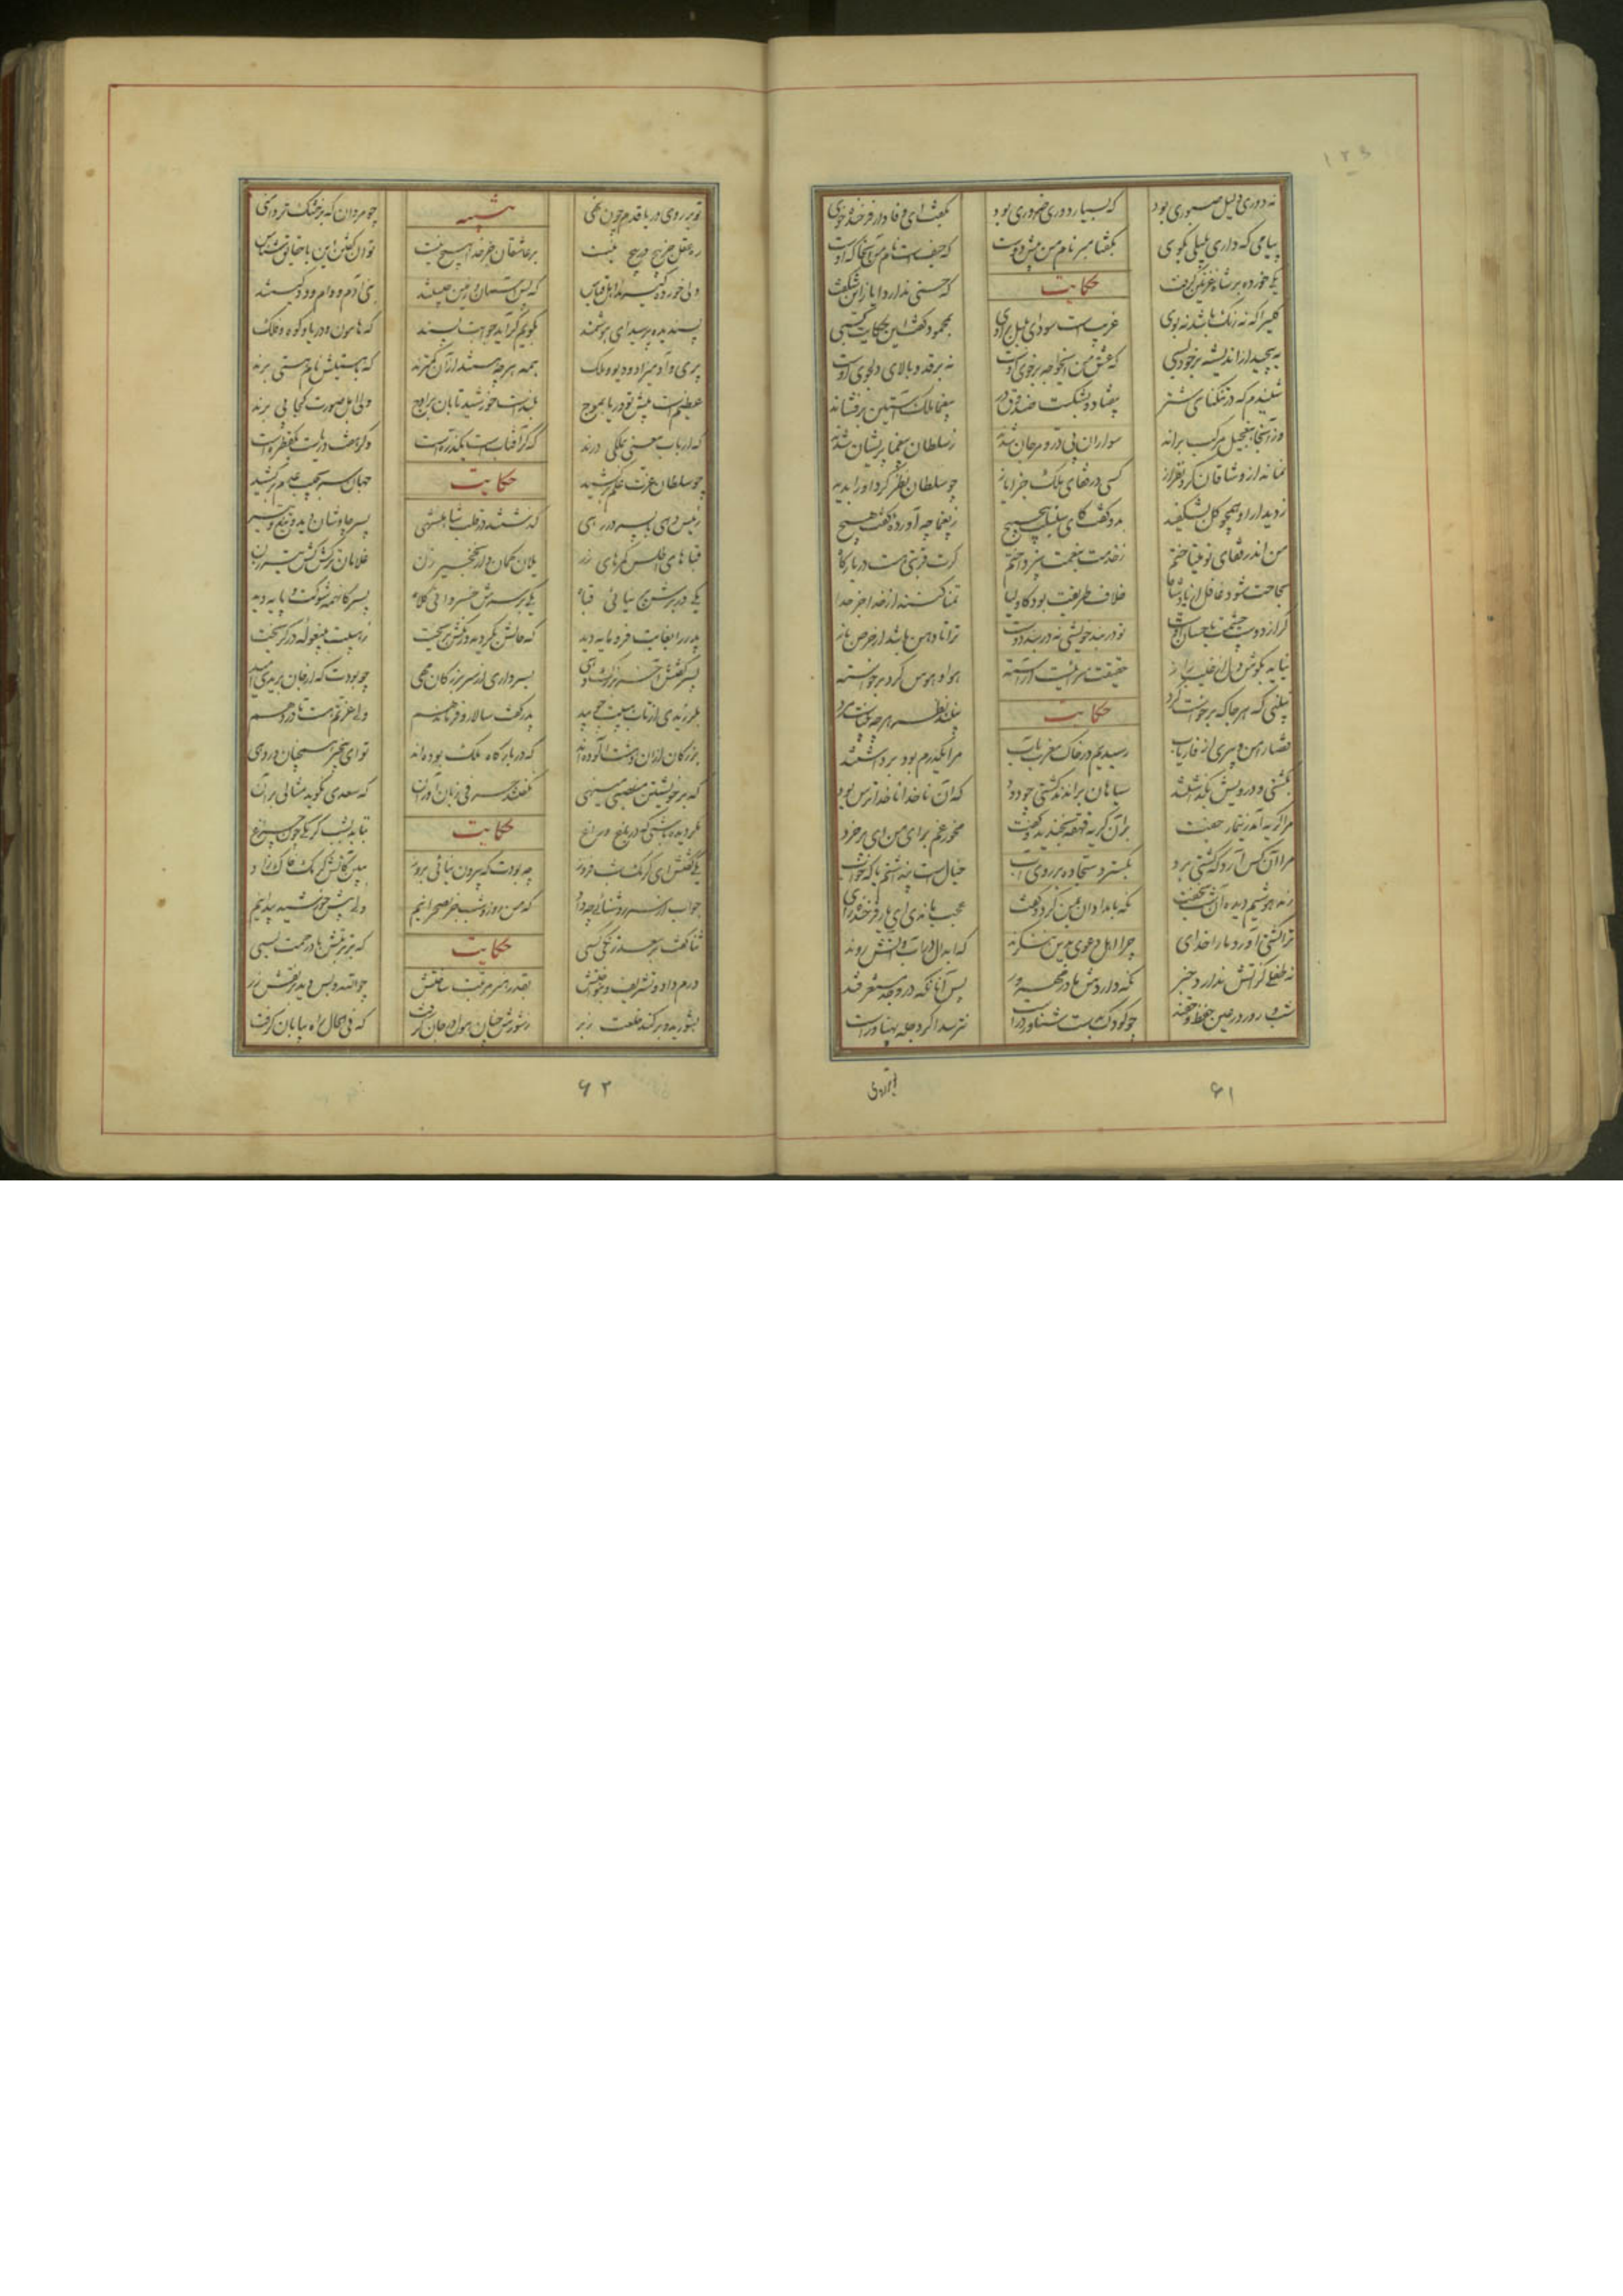 نه دوری دلیل صبوری بود که بسیار دوری ضروری بود بگفت ای وفادار فرخنده خوی
پیامی که داری بلیلی بگوی بگفتا مبر نام من پیش دوست که حیفست نام من آنجا که اوست
یکی خورده بر شاه غزنین گرفت حکایت که حسنی ندارد ایاز ای شگفت
گلیرا که نه رنگ باشد نه بوی غریبست سودای بلبل بر اوی بمحمود گفت این حکایت کسی
به پیچید از اندیشه بر خود بسی که عشق من ای خواجه بر خوی اوست نه بر قد و بالای دلجوی اوست
شنیدم که در تنگنای شتر بیفتاد و بشکست صندوق در بیغما ملک آستین برفشاند
وز آنجا بتعجیل مرکب براند سواران پی در و مرجان شدند ز سلطان بیغما پریشان شدند
نماند از وشاقان گردنفراز کسی در قفای ملک جز ایاز چو سلطان نظر کرد او را بدید
ز دیدار او همچو گل بشکفید بدو گفت کای سنبلت پیچ پیچ ز یغما چه آورده گفت هیچ
من اندر قفای تو میتاختم ز خدمت بنعمت نپرداختم گرت قربتی هست در بارگاه
بخلعت مشو غافل از پادشاه خلاف طریقت بود کاولیا تمنا کنند از خدا جز خدا
گر از دوست چشمت باحسان اوست تو در بند خویشی نه در بند دوست ترا تا دهن باشد از حرص باز
نیاید بگوش دل از غیب راز حقیقت سرائیست آراسته هوا و هوس گرد برخواسته
نبینی که هر جا که برخواست گرد حکایت نبیند نظر گرچه بیناست مرد
قضا را من و پیری از فاریاب رسیدیم در خاک مغرب بآب مرا یکدرم بود برداشتند
بکشتی و درویش نگذاشتند سیاهان براندند کشتی چو دود که آن ناخدا ناخدا ترس بود
مرا گریه آمد ز تیمار جفت بر آن گریه قهقه بخندید و گفت مخور غم برای من ای پر خرد
مرا آن کس آرد که کشتی برد بگسترد سجاده بر روی آب خیالست پنداشتم یا که خواب
ز مدهوشیم دیده آن شب نخفت نگه بامدادان بمن کرد و گفت عجب ماندی ای یار فرخنده رای
ترا کشتی آورد ما را خدای چرا اهل دعوی بدین نگروند که ابدال در آب و آتش روند
نه طفلی کز آتش ندارد خبر نگه داردش مادر مهرور پس آنانکه در وجد مستغرقند
شب و روز در عین حفظ حقند چو کودک بدست شناور درست نترسد اگر دجله پهناورست
۶۱
تو بر روی دریا قدم چون نهی تنبیه چو مردان که بر خشک تردامنی
ره عقل جز پیچ در پیچ نیست بر عاشقان جز خدا هیچ نیست توان گفتن این با حقایق شناس
ولی خورده گیرند اهل قیاس که پس آسمان و زمین چیستند بنی آدم و دام و دد کیستند
پسندیده پرسیدی ای هوشمند بگویم گر آید جوابت پسند که هامون و دریا و کوه و فلک
پری و آدمیزاد و دیو و ملک همه هرچه هستند از آن کمترند که با هستیش نام هستی برند
عظیمست پیش تو دریا بموج بلندست خورشید تابان باوج ولی اهل صورت کجا پی برند
که ارباب معنی بملکی درند که گر آفتابست یکذره نیست وگر هفت دریاست یکقطره نیست
چو سلطان عزت علم برکشید حکایت جهان سر بجیب عدم درکشید
رئیس دهی با پسر در رهی گذشتند در قلب شاهنشهی پسر چاوشان دید و تیغ و تبر
قباهای اطلس کمرهای زر یلان کماندار نخجیر زن غلامان ترکش کش تیر زن
یکی در برش پرنیانی قباه یکی بر سرش خسروانی کلاه پسر کانهمه شوکت و پایه دید
پدر را بغایت فرومایه دید که حالش بگردید و رنگش بریخت ز هیبت بپیغوله در گریخت
پسر گفتش آخر بزرگ دهی بسرداری از سر بزرگان مهی چه بودت که از جان بریدی امید
بلرزیدی از باد هیبت چو بید پدر گفت سالار و فرماندهم ولی عزتم هست تا در دهم
بزرگان از آن دهشت آلوده اند که در بارگاه ملک بوده اند تو ای بیخبر همچنان در دهی
که بر خویشتن منصبی مینهی نگفتند حرفی زبان آوران که سعدی نگوید مثالی بر آن
مگر دیده باشی که در باغ و راغ حکایت بتابد بشب کرمکی چون چراغ
یکی گفتش ای کرمک شب فروز چه بودت که بیرون نیائی بروز ببین کاتشی کرمک خاک زاد
جواب از سر روشنائی چه داد که من روز و شب جز بصحرا نیم ولی پیش خورشید پیدا نیم
ثنا گفت بر سعد زنگی کسی حکایت که بر تربتش باد رحمت بسی
درم داد و تشریف و بنواختش بقدر هنر مرتبت ساختش چو الله و بس دید بر نقش زر
بشورید و برکند خلعت ز بر ز شورش چنان شعله در جان گرفت که فی الحال راه بیابان گرفت
۶۲